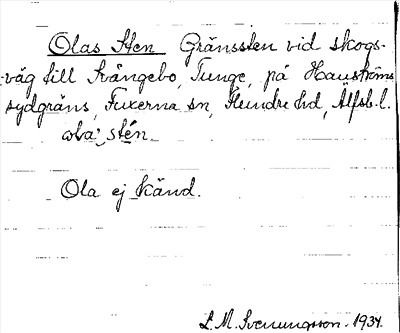 Olas Sten Gränssten vid skogs-
väg till Svängebo, Tunge, på Hauströms
sydgräns, Fuxerna sn, Fleindre hd, Älfsb. l.
ola` stén.
Ola ej känd.
L. M. Svenungsson. 1934.